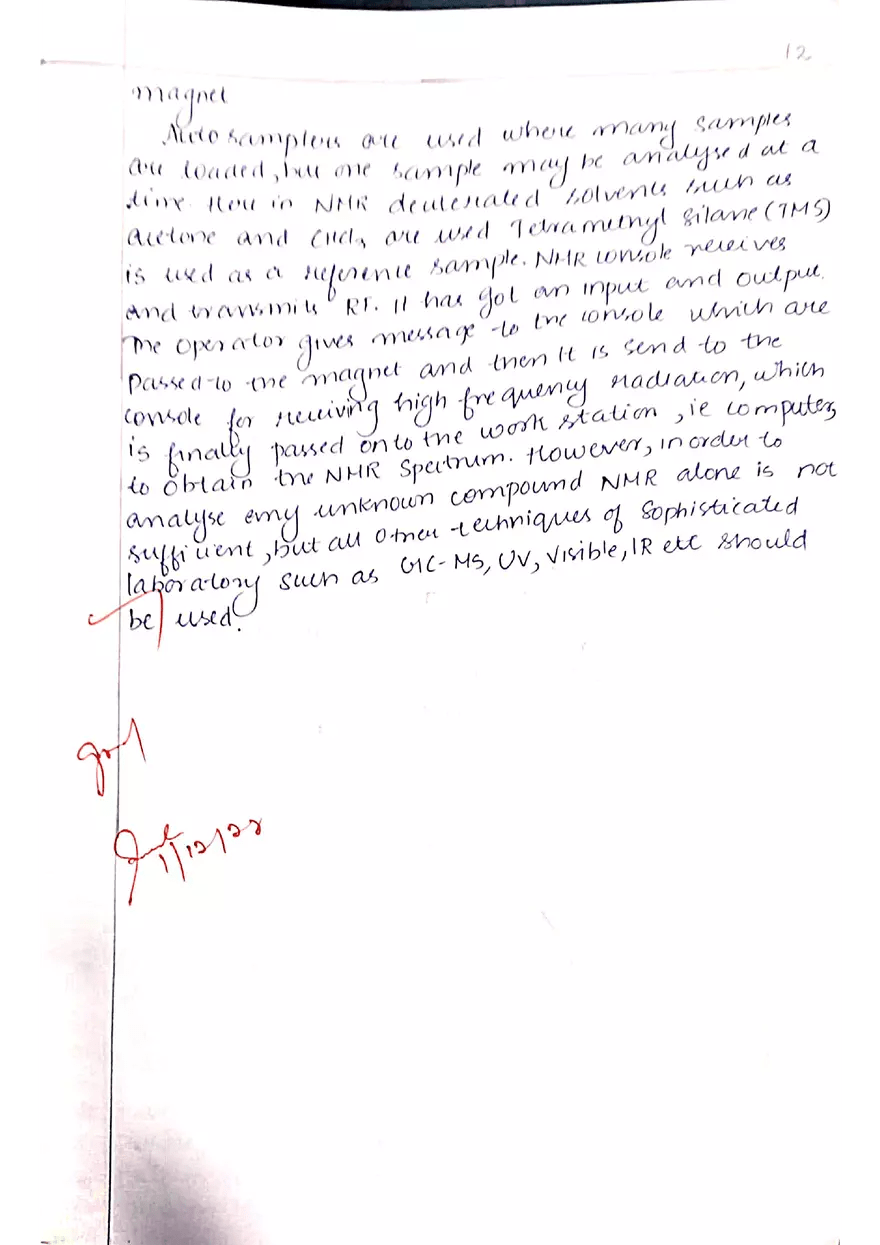 12
magnet
Auto samplers are used where many samples
are loaded, but one sample may be analysed at a
time. Here in NMR deuterated solvents such as
acetone and CHCl3 are used Tetramethyl silane (TMS)
is used as a reference sample. NMR console receives
and transmits RF. It has got an input and output.
The operator gives message to the console which are
passed to the magnet and then It is send to the
console for receiving high frequency radiation, which
is finally passed onto the work station, ie computer,
to obtain the NMR Spectrum. However, in order to
analyse any unknown compound NMR alone is not
sufficient, but all other techniques of sophisticated
laboratory such as GC-MS, UV, Visible, IR etc should
be used.
1/12/22